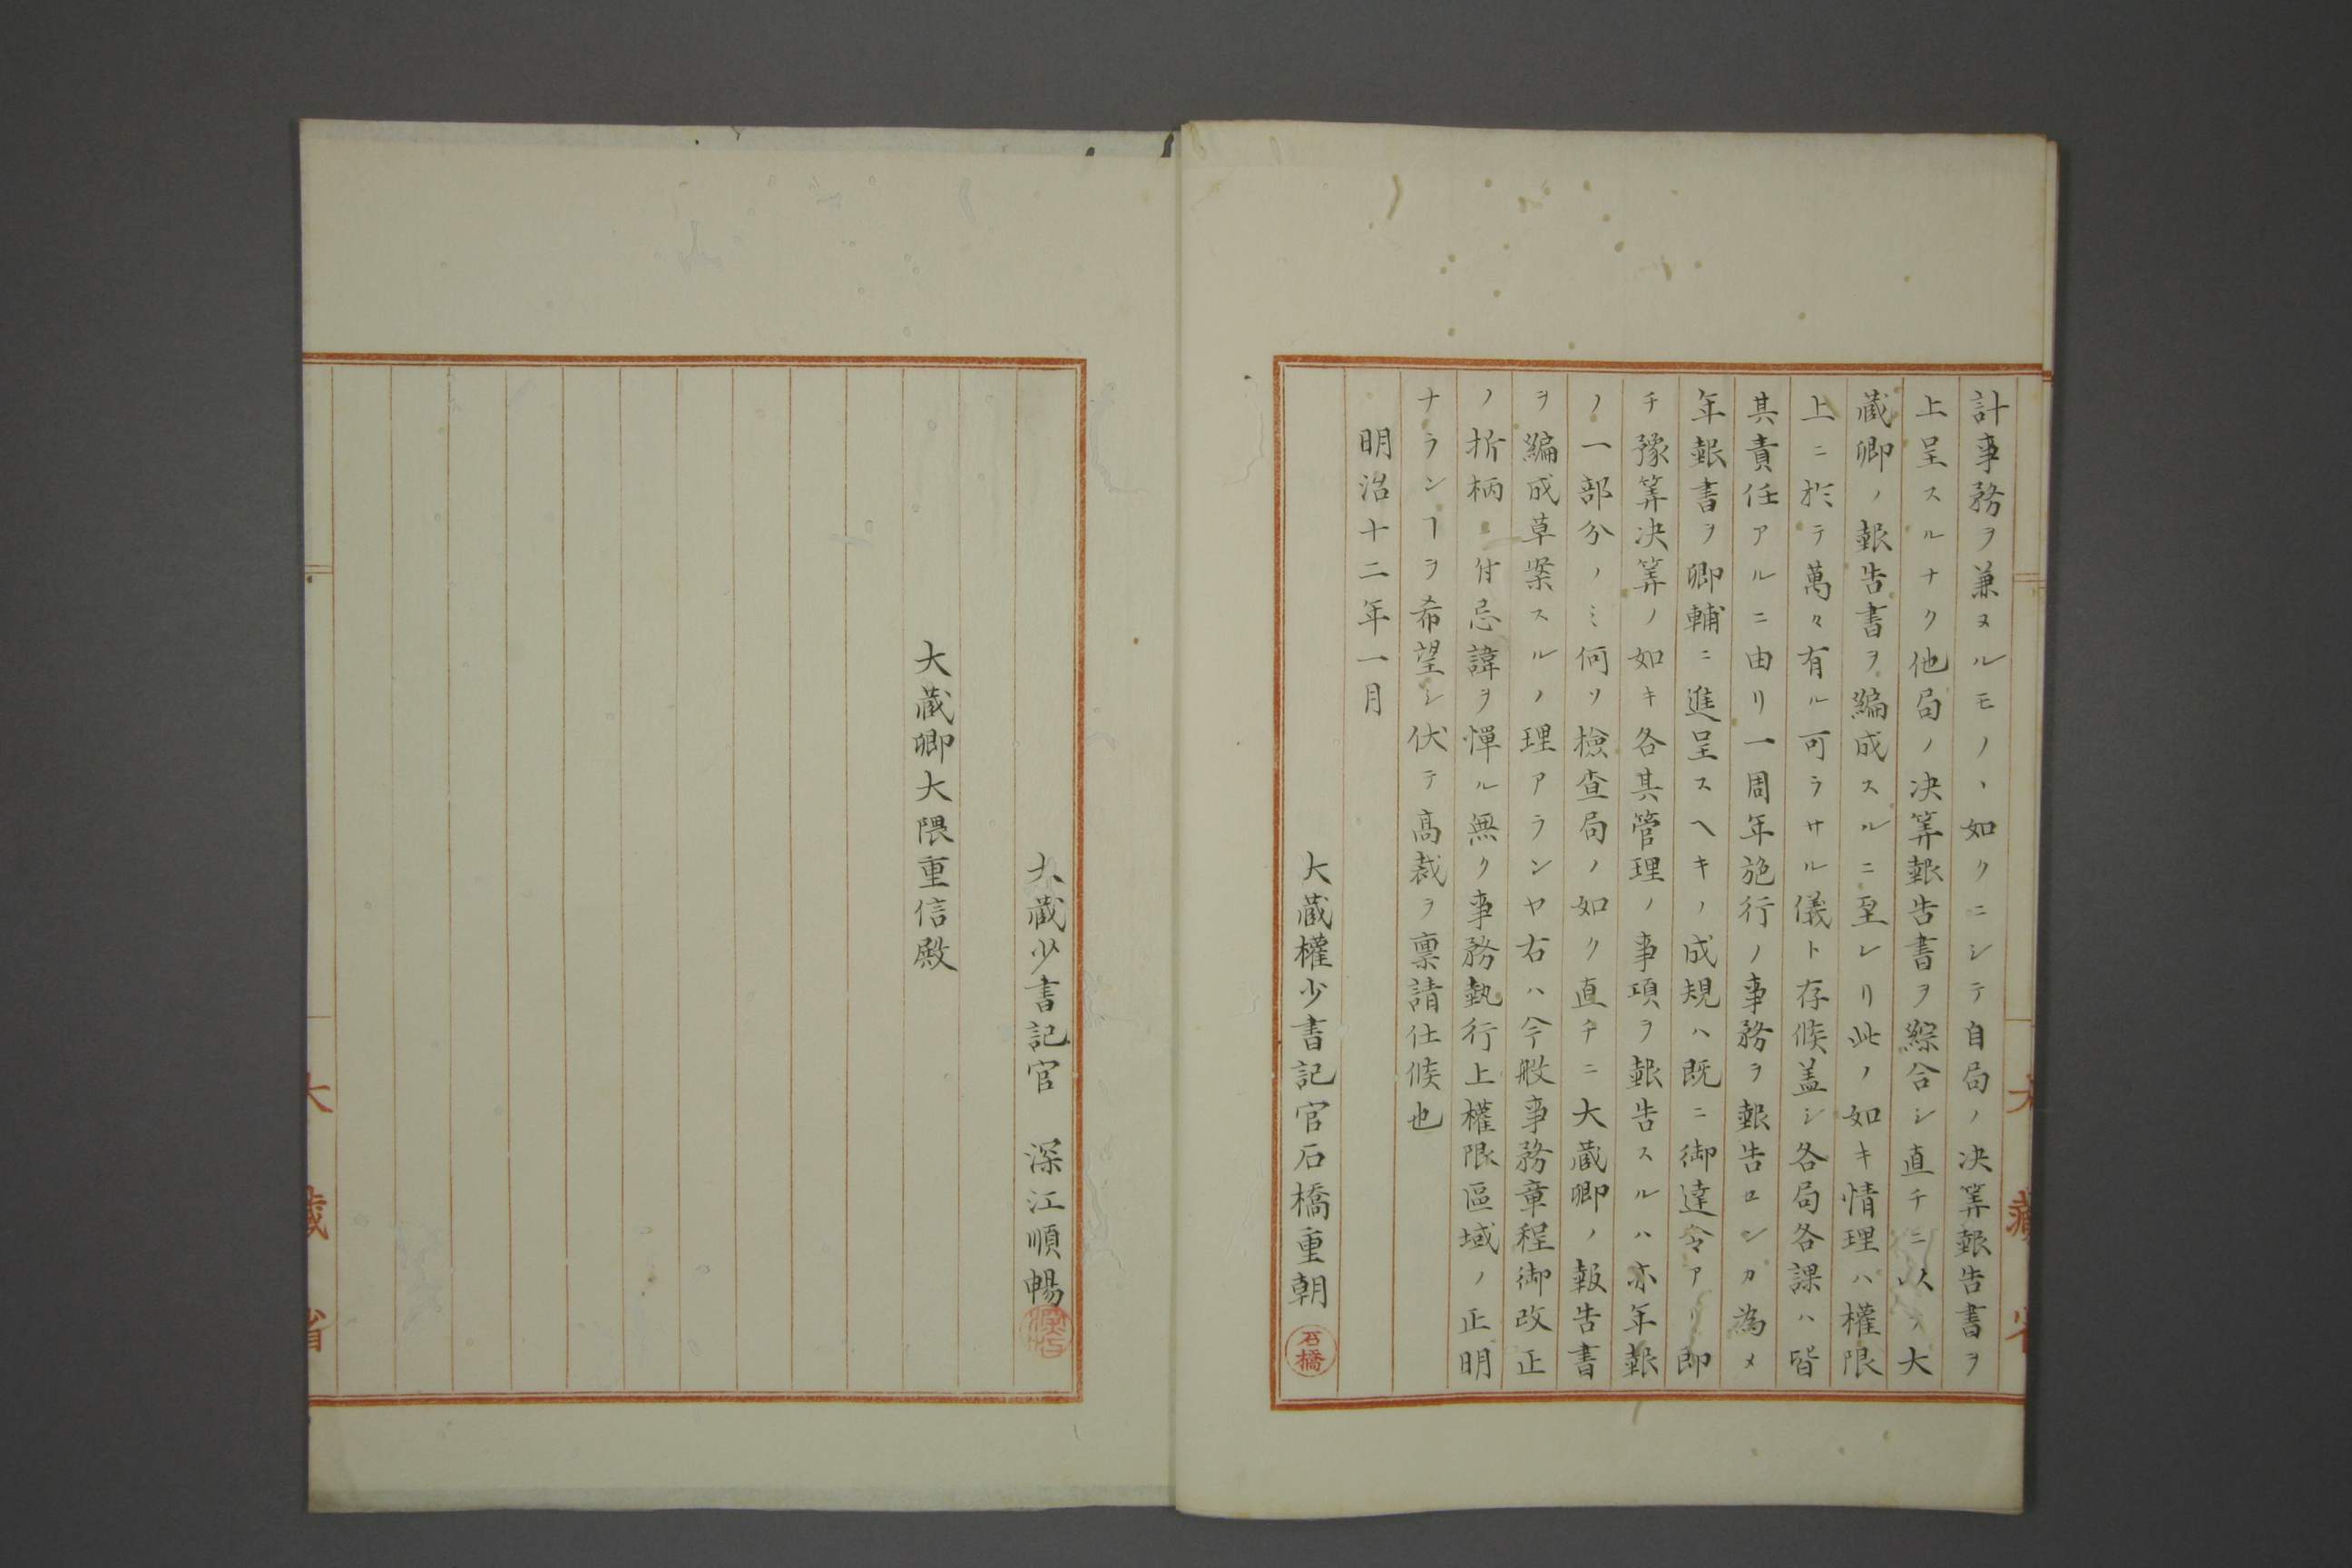 計事務ヲ兼ヌルモノヽ如クニシテ自局ノ决筭報告書ヲ
上呈スルナク他局ノ决筭報告書ヲ綜合シ直チニ以テ大
蔵卿ノ報告書ヲ編成スルニ至レリ此ノ如キ情理ハ權限
上ニ於テ萬々有ル可ラサル儀ト存候盖シ各局各課ハ皆
其責任アルニ由リ一周年施行ノ事務ヲ報告センカ為メ
年報書ヲ卿輔ニ進呈スヘキノ成規ハ既ニ御達令アリ即
チ豫筭决筭ノ如キ各其管理ノ事項ヲ報告スルハ亦年報
ノ一部分ノミ何ソ檢査局ノ如ク直チニ大蔵卿ノ報告書
ヲ編成草案スルノ理アランヤ右ハ今般事務章程御改正
ノ折柄ニ付忌諱ヲ憚ル無ク事務執行上權限區域ノ正明
ナランヿヲ希望シ伏テ髙裁ヲ禀請仕候也
明治十二年一月
大蔵權少書記官石橋重朝
石橋
大蔵少書記官 深江順暢
大蔵卿大隈重信殿
大藏省